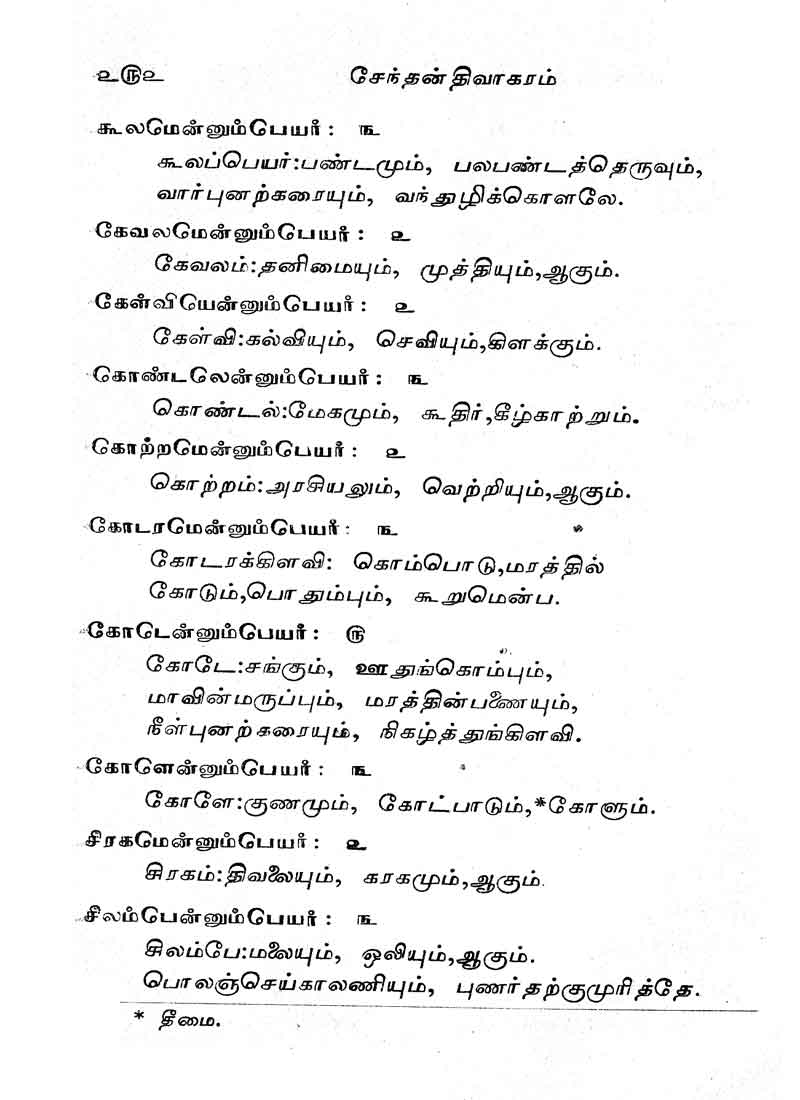 ௨௫௨ சேந்தன் திவாகரம்
கூலமென்னும்பெயர் : ௩
கூலப்பெயர்:பண்டமும், பலபண்டத்தெருவும்,
வார்புனற்கரையும், வந்துழிக்கொளலே.
கேவலமென்னும்பெயர் : ௨
கேவலம்:தனிமையும், முத்தியும்,ஆகும்.
கேள்வியென்னும்பெயர் : ௨
கேள்வி:கல்வியும், செவியும்,கிளக்கும்.
கொண்டலென்னும்பெயர் : ௩
கொண்டல்:மேகமும், கூதிர்,கீழ்காற்றும்.
கொற்றமென்னும்பெயர் : ௨
கொற்றம்:அரசியலும், வெற்றியும்,ஆகும்.
கோடரமென்னும்பெயர் : ௩
கோடரக்கிளவி: கொம்பொடு,மரத்தில்
கோடும்,பொதும்பும், கூறுமென்ப.
கோடென்னும்பெயர் : ௫
கோடே:சங்கும், ஊதுங்கொம்பும்,
மாவின்மருப்பும், மரத்தின்பணையும்,
நீள்புனற்கரையும், நிகழ்த்துங்கிளவி.
கோளென்னும்பெயர் : ௩
கோளே:குணமும், கோட்பாடும்,*கோளும்.
சீரகமென்னும்பெயர் : ௨
சிரகம்:திவலையும், கரகமும்,ஆகும்.
சீலம்பென்னும்பெயர் : ௩
சிலம்பே:மலையும், ஒலியும்,ஆகும்.
பொலஞ்செய்காலணியும், புணர்தற்குமுரித்தே.
* தீமை.